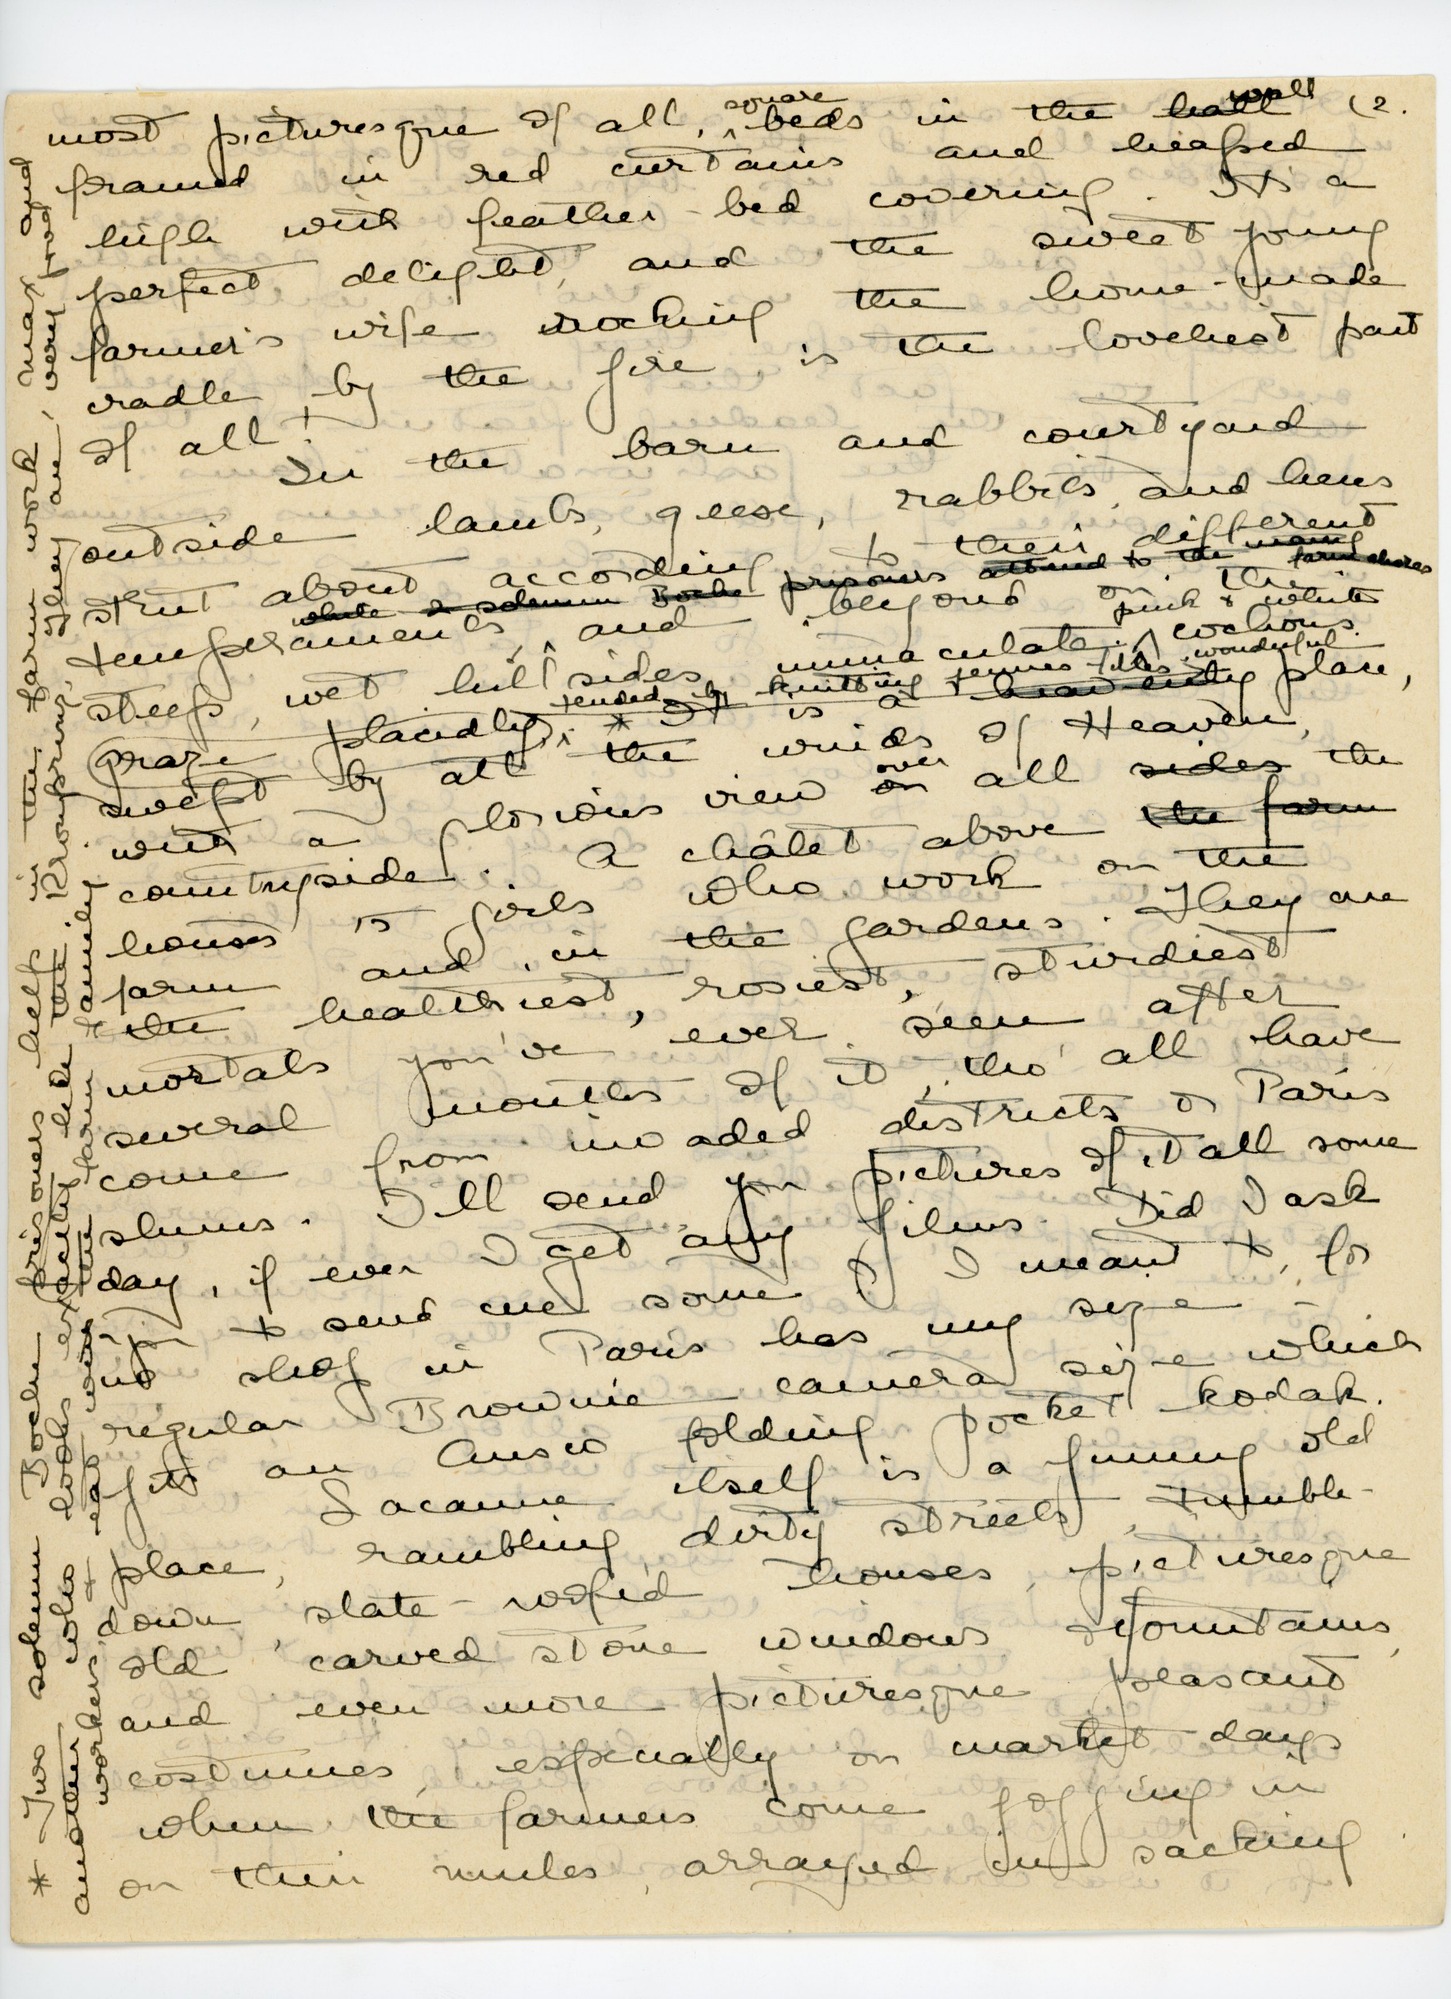 (2.
most picturesque of all, square beds in the hall wall
framed in red curtains and heaped
high with feather-bed covering. It's a
perfect delight, and the sweet young
farmer's wife rocking the home-made
cradle by the fire is the loveliest part
of all!
In the barn and courtyard
outside lambs, geese, rabbits, and hens
strut about according to their different
while 2 solemn Boche prisoners attend to the many farm chores
temperaments, and beyond on the
steep, wet hillsides, immaculate pink & white cochons
graze placidly, tended by knitting jeunes filles. * It is a heavenly wonderful place,
swept by all the winds of Heaven,
with a glorious view on over all sides the
countryside. A châlet above the farm
houses 15 girls who work on the
farm and in the gardens. They are
the healthiest, rosiest, sturdiest
mortals you've ever seen after
several months of it, tho' all have
come from invaded districts or Paris
slums. I'll send you pictures of it all some
day, if ever I get any films. Did I ask
you to send me some? I meant to, for
no shop in Paris has my size –
regular Brownie camera size which
fits an Ansco folding pocket kodak.
Lacaune itself is a funny old
place, rambling, dirty streets, tumble-
down, slate-roofed houses, picturesque
old carved stone windows & fountains,
and even more picturesque peasant
costumes, especially on market days
when the farmers come jogging in
on their mules, arrayed in sacking
* Two solemn Boche prisoners help in the farm work, Max and
another who looks exactly like the Kronprinz. They are very good
workers, & eat with the farm family.